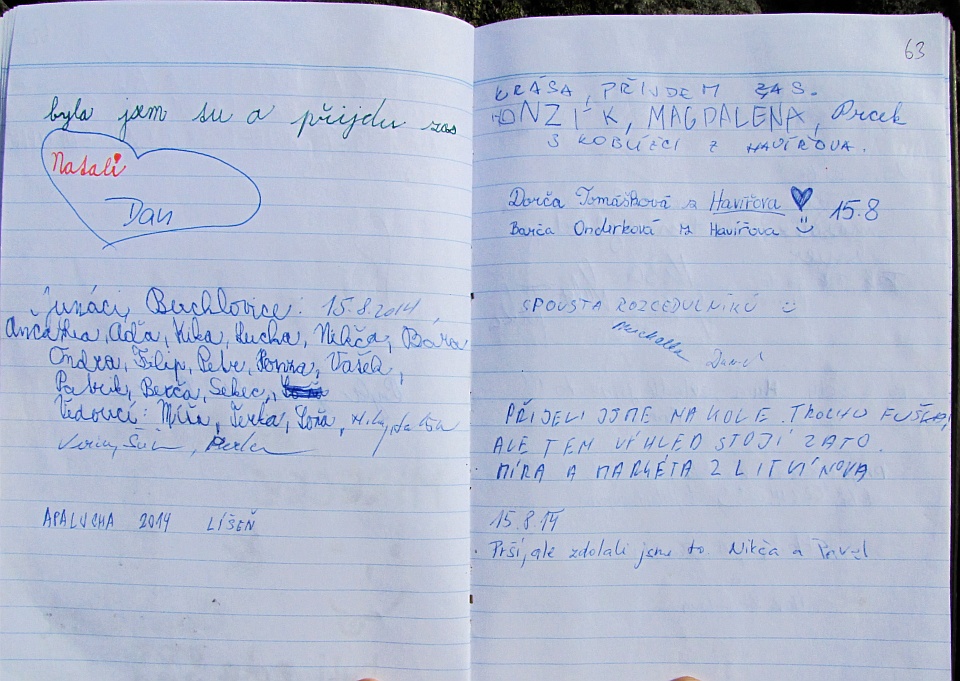 byla jsem su a přijdu zas
Natali
Dan
Junáci Buchlovice: 15.8.2014
Ančatka, Aďa, Kika, Nikča, Bára
Ondra, Filip, Petr, Honza, Vašek,
Patrik, Berča,
Vedoucí: Míša, Terka, Soňa,
APALUCHA 2014 LÍŠEŇ
63
KRÁSA, PŘIJDEM ZAS.
HONZÍK, MAGDALENA, Drcek
S KOBLÍŽCI Z HAVÍŘOVA.
Dorča Tomášková z Havířova 15.8
Barča Onderková z Havířova
SPOUSTA ROZCEDULNÍKŮ
Michalka
PŘIJELI JSME NA KOLE. TROCHU
ALE TEN VÝHLED STOJÍ ZATO.
MÍRA A MARKÉTA Z LITVÍNOVA
15.8.14
Prší, ale zdolali jsme to. Nikča a Pavel